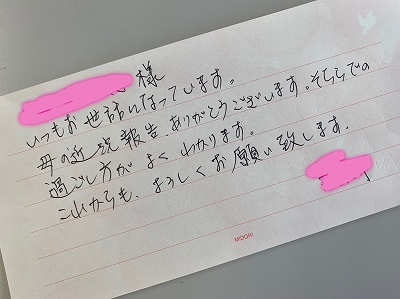 様
いつもお世話になっています。
母の近況報告、ありがとうございます。そちらでの
過ごし方が よく わかります。
これからも、よろしくお願い致します。
MIDORI